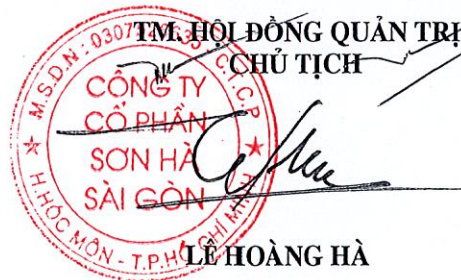 TM. HỘI ĐỒNG QUẢN TRỊ
CHỦ TỊCH
CÔNG TY
CỔ PHẦN
SƠN HÀ
SÀI GÒN
H.HÓC MÔN - T.P.HỒ CHÍ MINH
LÊ HOÀNG HÀ